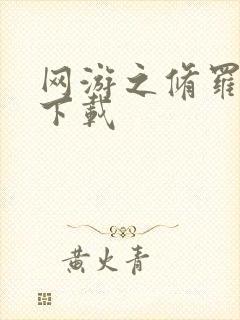 网游之脩羅
下載
黄火青